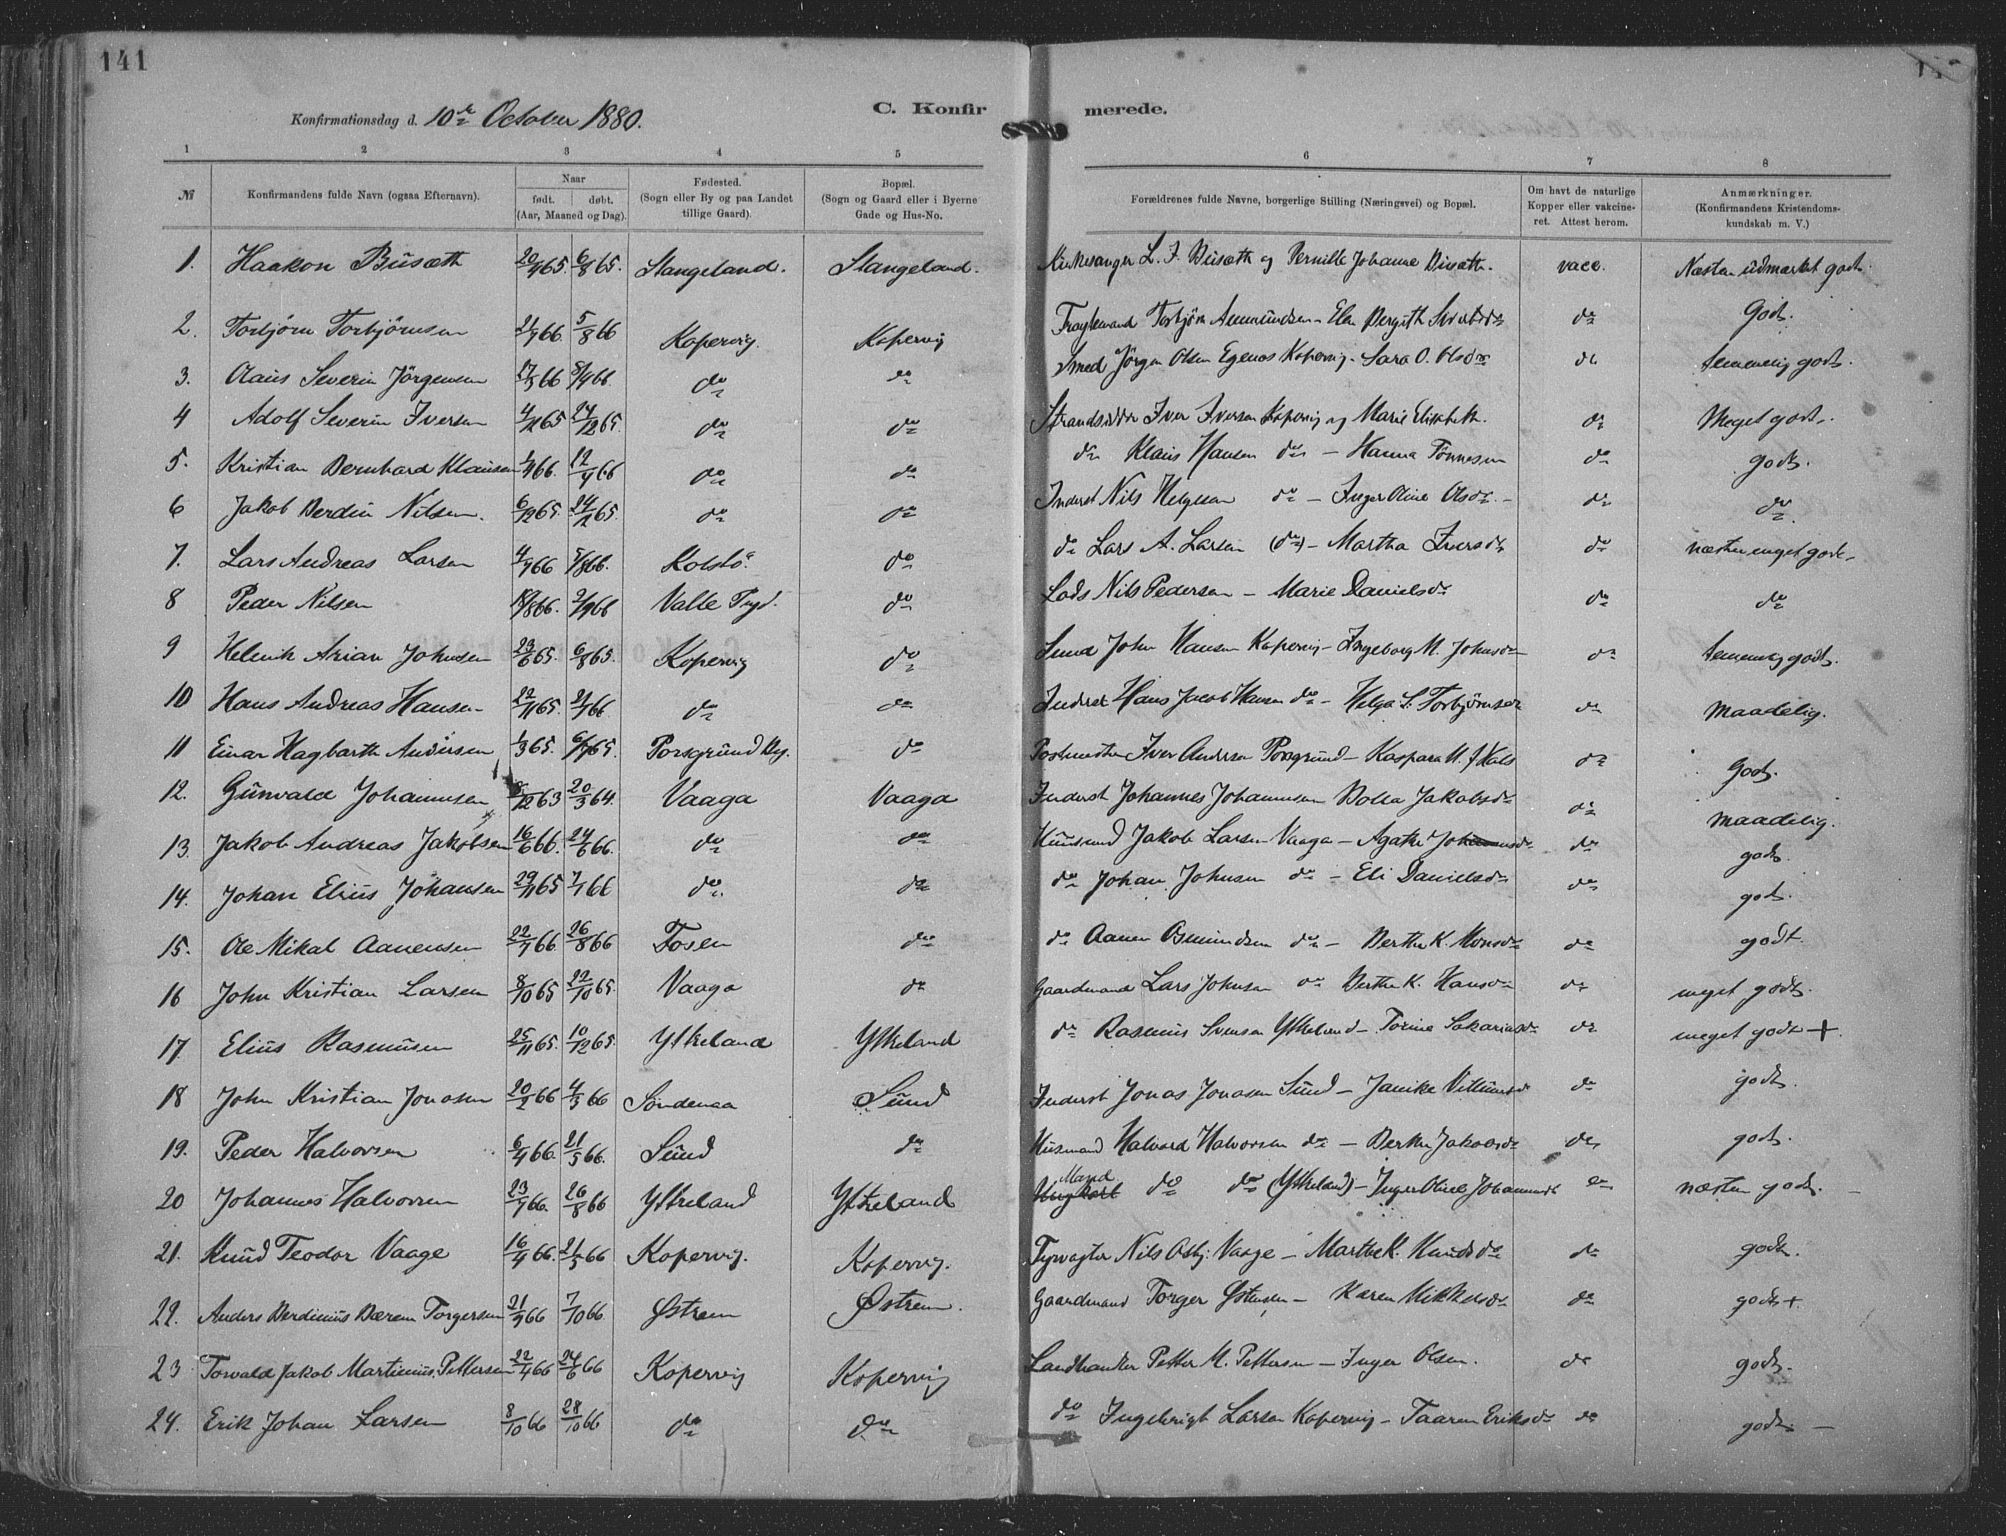 141
Konfirmationsdag d. 10de October 1880.
C. Konfirmerede.
1 2 3 4 5 6 7 8
№ Konfirmandens fulde Navn (ogsaa Efternavn). Naar født. døbt. (Aar, Maaned og Dag). Fødested. (Sogn eller By og paa Landet tillige Gaard). Bopæl. (Sogn og Gaard eller i Byerne Gade og Hus-No. Forældrenes fulde Navne, borgerlige Stilling (Næringsvei) og Bopæl. Om havt de naturlige Kopper eller vakcineret. Attest herom. Anmærkninger. (Konfirmandens Kristendomskundskab m. V.)
1. Haakon Busæth 20/7 65 6/8 65. Stangeland. Stangeland. Kirkesanger L. J. Busæth og Pernille Johanne Busæth. vacc. Næsten udmærket godt.
2. Torbjørn Torbjørnsen 21/7 66 5/8 66 Kopervig. Kopervig Torbjørn Aamundsen – Elen Bergith do Godt.
3. Olaus Severin Jørgensen 17/3 66 8/4 66 do do Smed Jørgen Olsen Egenæs Kopervig – Sara O. Olsdr do temmelig godt.
4 Adolf Severin Iversen 4/11 65 24/12 65. do do Strandsidder Iver Iversen Kopervig og Marie Elisabeth. do Meget godt.
5. Kristian Bernhard Klausen 1/4 66. 12/4 66 do do do Klaus Hansen do – Hanna Tønnesen do godt.
6 Jakob Berdin Nilsen. 6/12 65. 24/12 65. do do Inderst Nils Helgesen do – Inger Oline Olsdr. – do do
7. Lars Andreas Larsen 4/7 66 5/8 66. Kolstø. do do Lars A. Larsen (do) – Martha Iversdr do næsten meget godt
8 Peder Nilsen 18/8 66. 2/9 66 Valle do Lods Nils Pedersen – Marie Danielsdr do do
9 Helmik Arian Johnsen 23/6 65. 6/8 65. Kopervig do John Hansen Kopervig – Ingeborg M. Johnsdr do temmelig godt.
10 Hans Andreas Hansen 22/11 65. 21/1 66 do do Inderst Hans Jacob Hansen do – Helga S. Torbjørnsdr do maadelig.
11 Einar Hagbarth Andersen 1/3 65. 6/7 65. Porsgrund do Postmester Iver Andersen Porsgrund – Kaspara M. do Godt.
12. Gunvald Johannesen 8/12 63 20/3 64. Vaaga Vaaga Inderst Johannes Johannesen Bolla Jakobsdr do maadelig.
13. Jakob Andreas Jakobsen 16/6 66. 24/6 66. do do Husmand Jakob Larsen Vaaga – Agathe do godt.
14. Johan Elius Johansen 29/11 65 7/1 66 do. do do Johan Johnsen do – Eli Danielsdr do godt.
15. Ole Mikal Aanensen 22/7 66 26/8 66 Fosen do do Aanen Osmundsen do – Berthe K. Monsdr do godt.
16 John Kristian Larsen 8/10 65 22/10 65. Vaaga do Gaardmand Lars Johnsen do Berthe K. Hansdr do meget godt.
17. Elius Rasmusen 25/11 65. 10/12 65. Ytreland Ytreland do Rasmus Svensen Ytreland – Torine Sakariasdr do meget godt +
18 John Kristian Jonasen 20/2 66 4/3 66 Søndenaa Sund Inderst Jonas Jonasen Sund – Janike Villumsdr do godt.
19. Peder Halvorsen 6/4 66. 21/5 66. Sund do Husmand Halvard Halvorsen do – Berthe Jakobsdr do godt.
20 Johannes Halvorsen 23/7 66. 26/8 66 Ytreland Ytreland Mand do do (Ytreland) – Inger Oline Johannesdr do næsten godt. –
21. Knud Teodor Vaage 16/4 66. 21/5 66 Kopervig. Kopervig. Fyrvagter Nils Asbj. Vaage – Marthe K. Knudsdr do godt.
22. Anders Berdinius Bærem Torgersen 21/9 66 7/10 66 Østrem Østrem. Gaardmand Torger Østensen – Karen Mikkelsdr do godt +
23 Torvald Jakob Martinius Pettersen 22/4 66 24/6 66 Kopervig Kopervig Landhandler Petter M. Pettersen – Inger Olsen. do godt.
24. Erik Johan Larsen 8/10 66 28/10 66 do do do Ingebrigt Larsen Kopervig – Taaren Eriksdr do godt. –